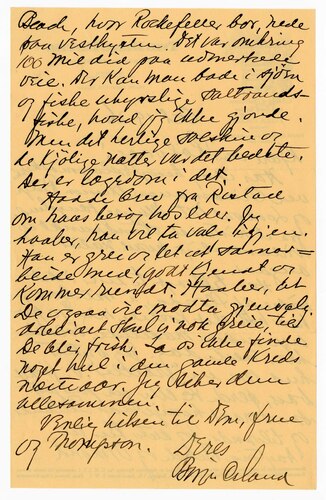 Beach, hvor Rockefeller bor, nede
paa vestkysten. Det var omkring
100 mil did paa udmerkede
veie. Der kan man bade i sjøen
og fiske uhyrslige saltvands-
fiske, hvad jeg ikke gjorde.
Men det herlige solskin og
de kjølige nætter var det bedste.
Der er lægedom i det.
Havde brev fra Ristad
om hans besøg hos Dem. Jeg
haaber, han vil ta valg igjen.
Han er grei og let at samar=
beide med, godt kjendt og
kommer rundt. Haaber, at
De ogsaa vil modta gjenvalg.
Arbeidet skal vi nok greie, til
De blir frisk. La os ikke finde
noget hul i den gamle Kreds
næste aar. Jeg liker dem
allesammen.
Venlig hilsen til Dem, frue
og Thompson.
Deres